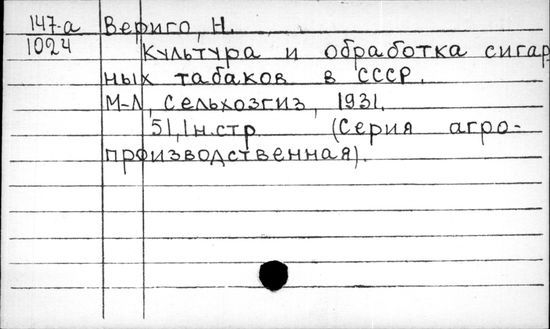 147-а Вериго, Н.
1024 Культура и обработка сигар-
ных табаков в СССР.
М-Л, Сельхозгиз, 1931.
51, 1 н.стр (Серия агро-
производственная).